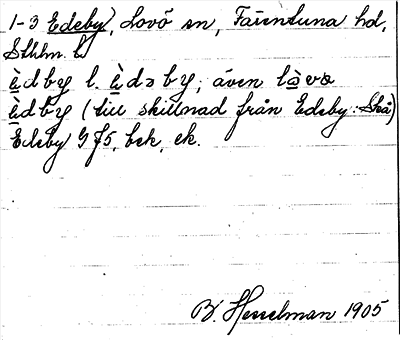 1-3 Edeby, Lovö sn, Färentuna hd,
Sthlm. l.
è̱dby l. è̱dəby, även là̱væ
è̱dby (till skillnad från Edeby: Skå)
Edeby G f5, bek, ek.
B. Hesselman 1905